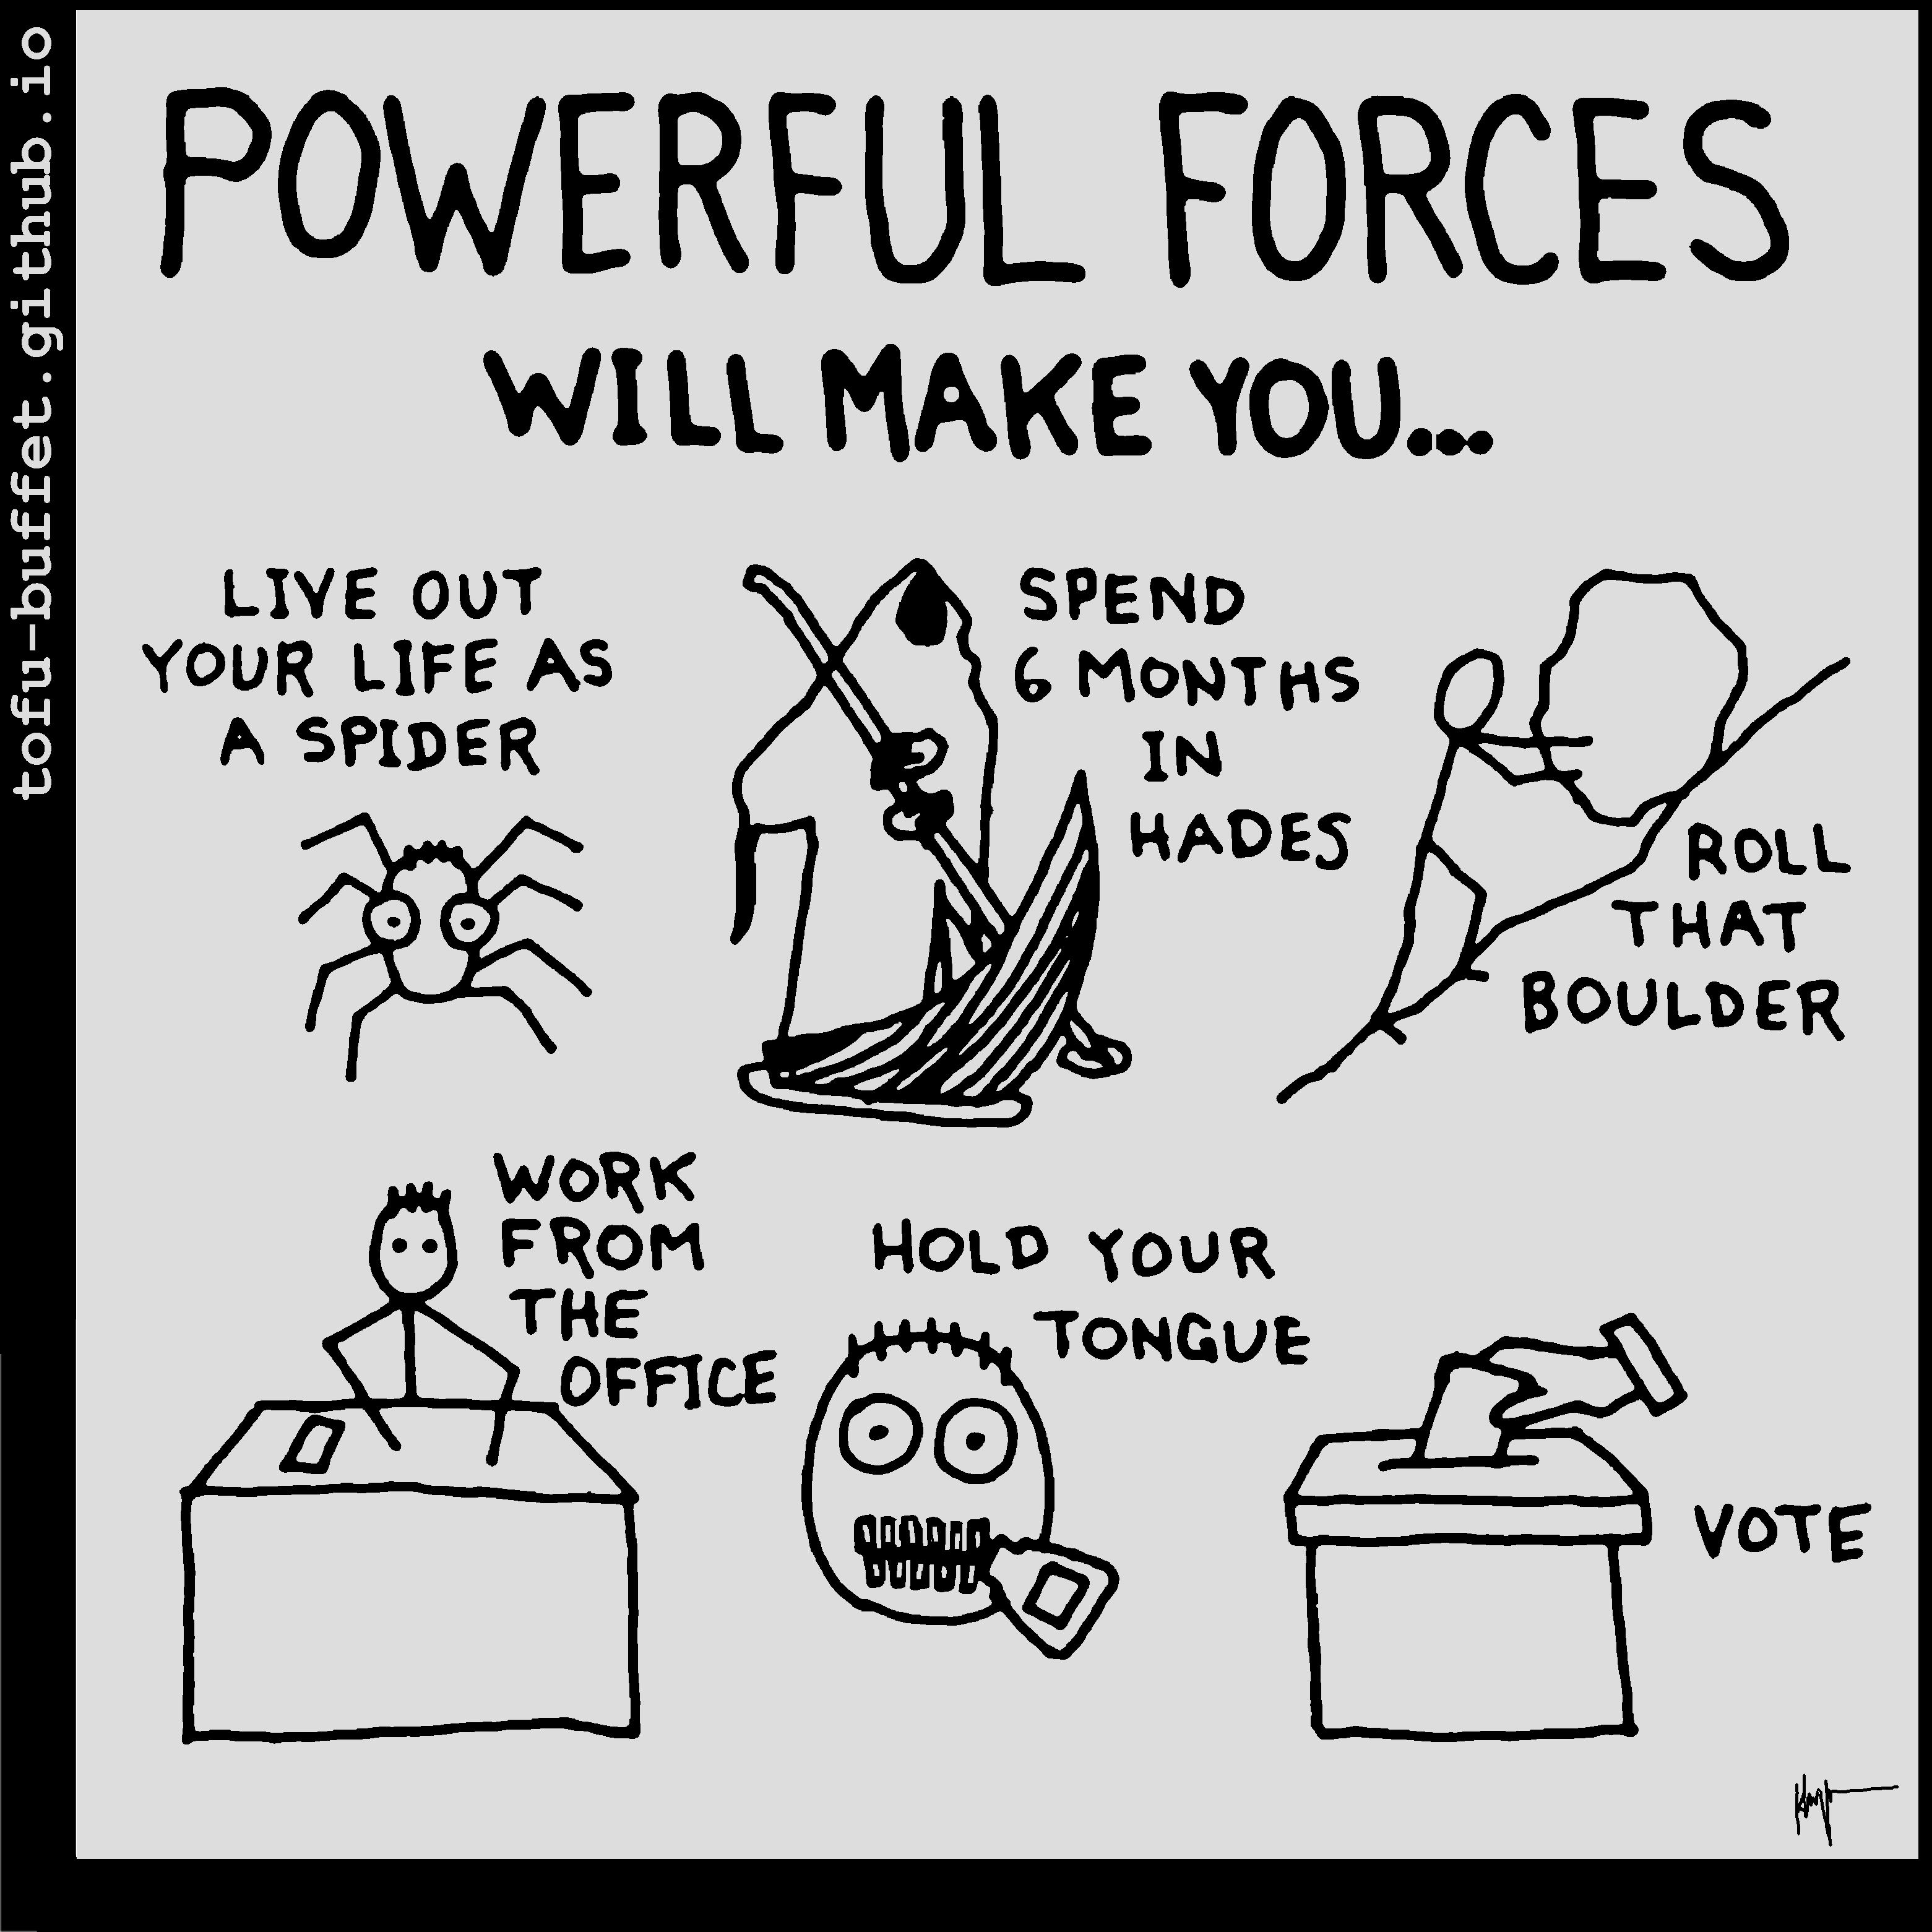 tofu-buffet.github.io
POWERFUL FORCES
WILL MAKE YOU...
LIVE OUT
YOUR LIFE AS
A SPIDER
SPEND
6 MONTHS
IN
HADES
ROLL
THAT
BOULDER
WORK
FROM
THE
OFFICE
HOLD YOUR
TONGUE
VOTE